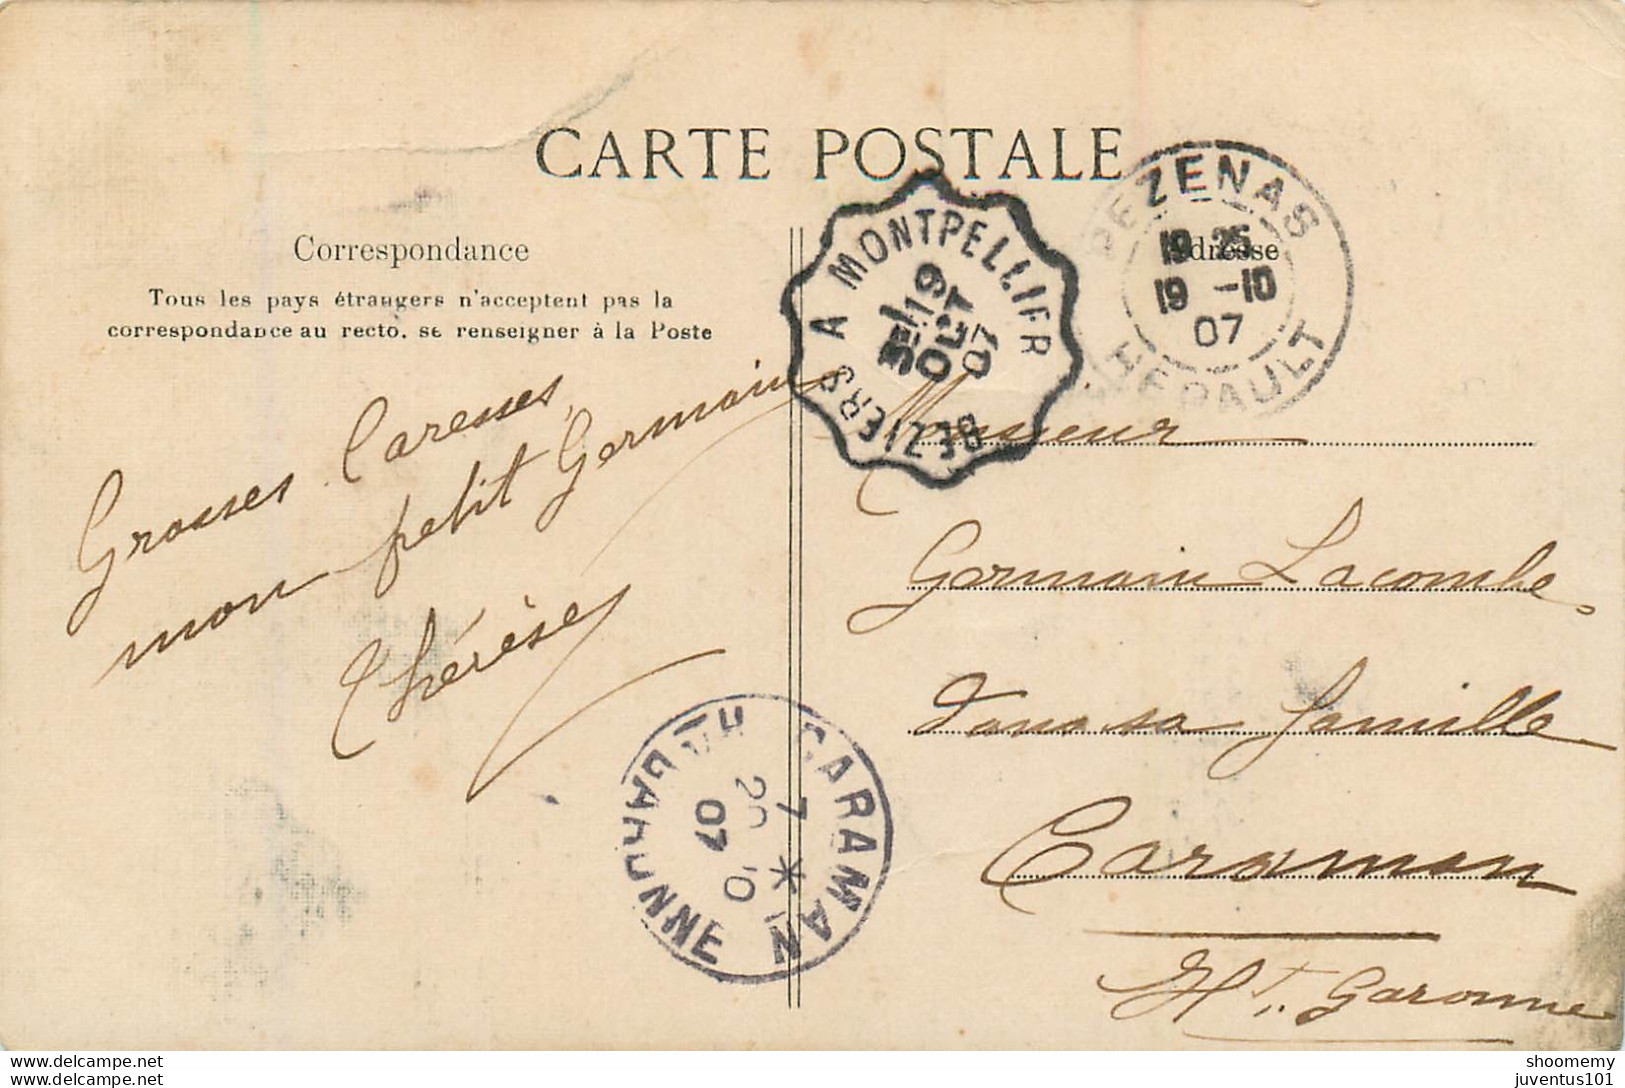 CARTE POSTALE
Correspondance
Tous les pays étrangers n'acceptent pas la
correspondance au recto, se renseigner à la Poste
Grosses Caresses
mon petit Germain
Thérèse
BEZIERS A MONTPELLIER
19
OCT
07
PEZENAS
19 25
19 -10
07
HERAULT
Adresse
Monsieur
Germain Lacombe
dans sa famille
Caraman
Hte Garonne
CARAMAN
7
20 10
07
HAUTE GARONNE
shoomemy
juventus101